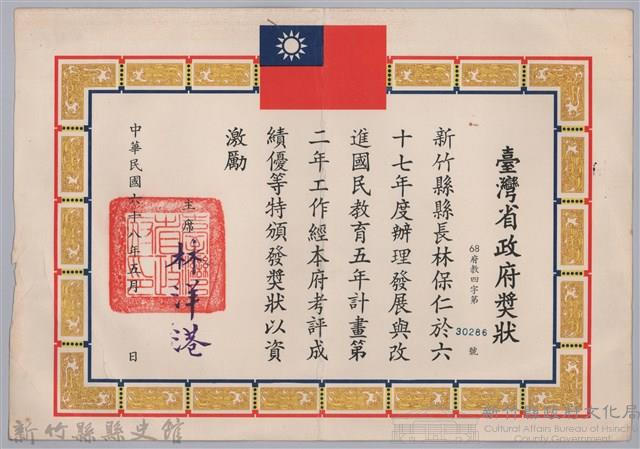 臺灣省政府獎狀
68府教四字第 30286 號
新竹縣縣長林保仁於六
十七年度辦理發展與改
進國民教育五年計畫第
二年工作經本府考評成
績優等特頒發獎狀以資
激勵
主席 林洋港
中華民國六十八年五月 日
新竹縣縣史館
新竹縣政府文化局
Cultural Affairs Bureau of Hsinchu
County Government